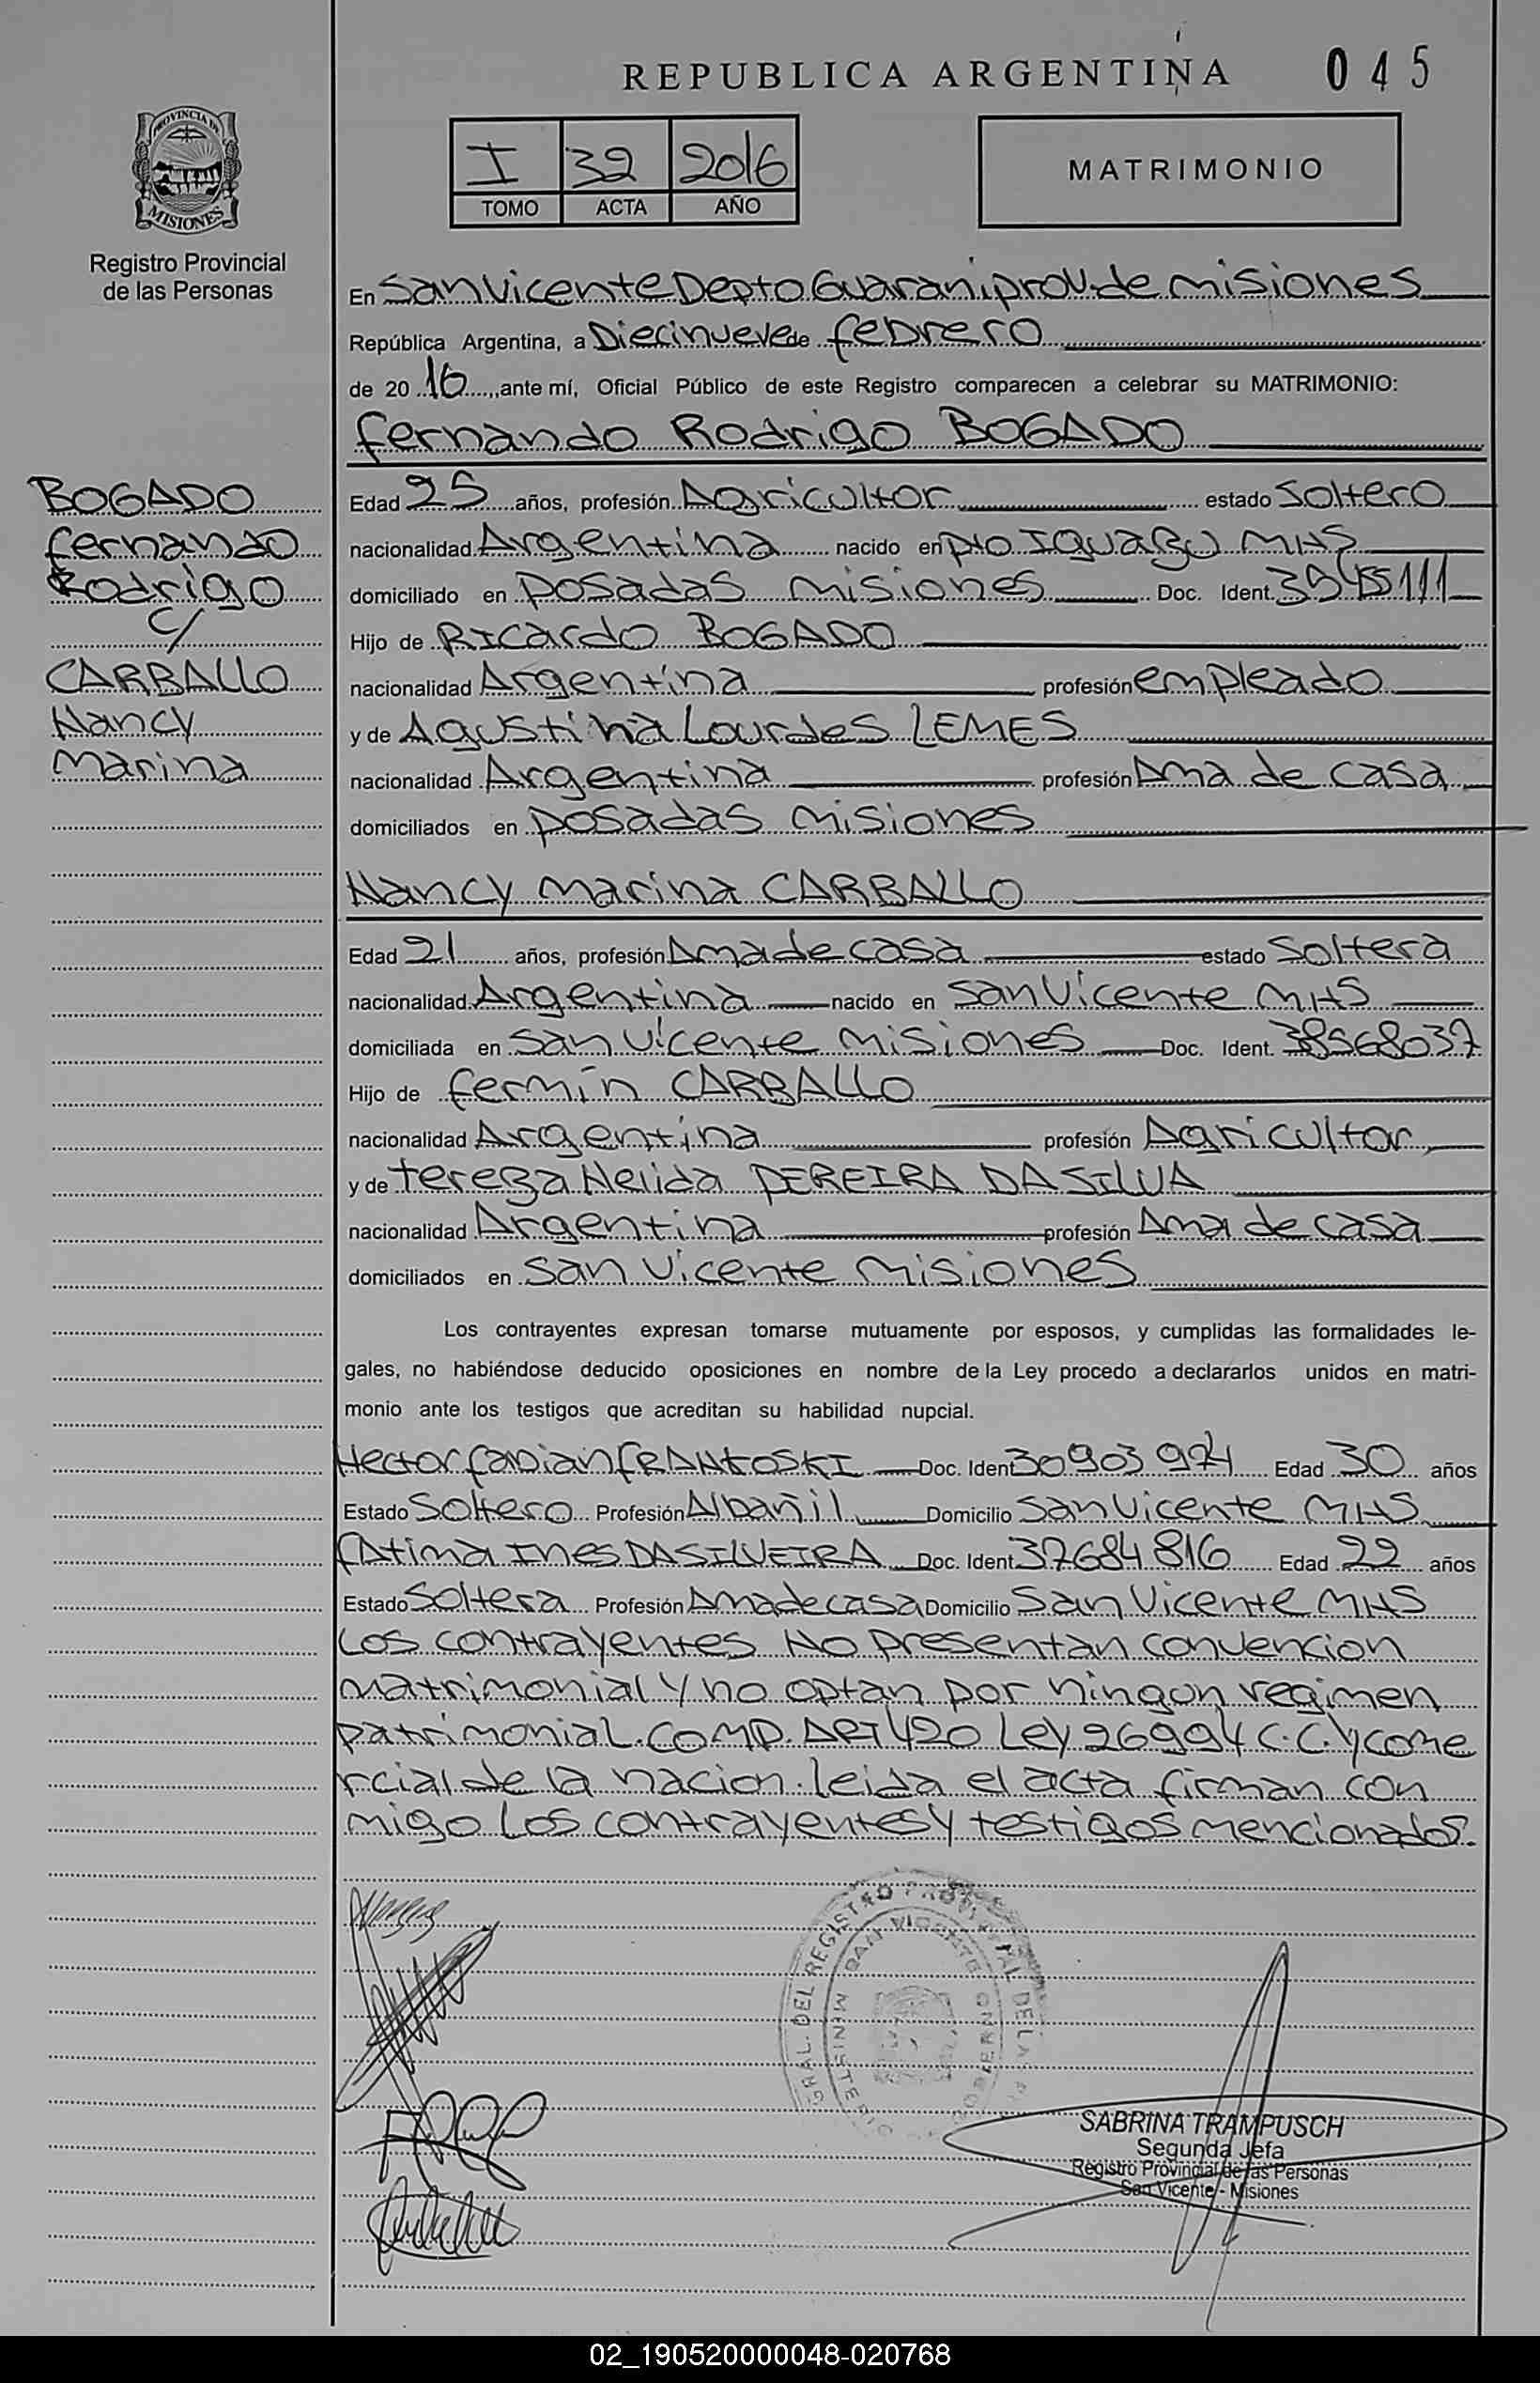 REPUBLICA ARGENTINA
045
PROVINCIA DE
MISIONES
Registro Provincial
de las Personas
I 32 2016
TOMO ACTA AÑO
MATRIMONIO
En San Vicente Depto Guarani, prov. de misiones
República Argentina, a Diecinueve de febrero
de 20 16 ,ante mí, Oficial Público de este Registro comparecen a celebrar su MATRIMONIO:
Fernando Rodrigo BOGADO
BOGADO
Fernando
Rodrigo
c/
CARBALLO
Nancy
Marina
Edad 25 años, profesión Agricultor estado Soltero
nacionalidad Argentina nacido en pto IguaZu MNS
domiciliado en posadas misiones Doc. Ident.
Hijo de RIcardo BOGADO
nacionalidad Argentina profesión empleado
y de Agustina Lourdes LEMES
nacionalidad Argentina profesión Ama de casa
domiciliados en posadas misiones
Nancy Marina CARBALLO
Edad 21 años, profesión Ama de casa estado Soltera
nacionalidad Argentina nacido en San Vicente MNS
domiciliada en San Vicente Misiones Doc. Ident. 38568037
Hijo de fermín CARBALLO
nacionalidad Argentina profesión Agricultor
y de tereza Nelida PEREIRA DA SILVA
nacionalidad Argentina profesión Ama de casa
domiciliados en San Vicente Misiones
Los contrayentes expresan tomarse mutuamente por esposos, y cumplidas las formalidades le-
gales, no habiéndose deducido oposiciones en nombre de la Ley procedo a declararlos unidos en matri-
monio ante los testigos que acreditan su habilidad nupcial.
Hector fabian FRANKOSKI Doc. Iden 30903974 Edad 30 años
Estado Soltero Profesión Albañil Domicilio San Vicente MNS
Fatima INes DA SILVEIRA Doc. Ident 37684816 Edad 22 años
Estado Soltera Profesión Ama de casa Domicilio San Vicente MNS
Los contrayentes No presentan convencion
matrimonial y no optan por ningun regimen
patrimonial. COMP. ART 420 Ley 26994 C.C. y come
rcial de la nacion. leida el acta firman con
migo Los contrayentes y testigos mencionados.
GRAL. DEL REGISTRO DE LAS
SAN VICENTE
MINISTERIO GOBIERNO
SABRINA TRAMPUSCH
Segunda Jefa
Registro Provincial de las Personas
San Vicente - Misiones
02_190520000048-020768